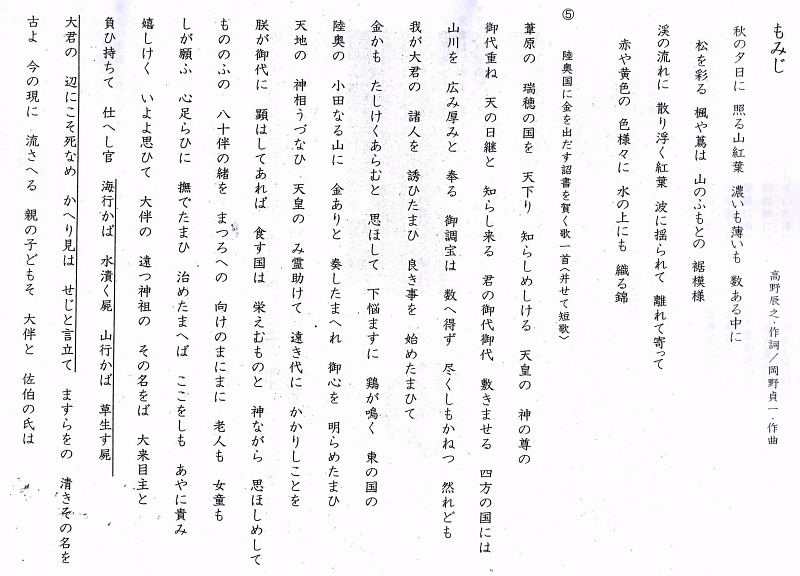 もみじ
高野辰之・作詞／岡野貞一・作曲
秋の夕日に　照る山紅葉　濃いも薄いも　数ある中に
松を彩る　楓や蔦は　山のふもとの　裾模様
渓の流れに　散り浮く紅葉　波に揺られて　離れて寄って
赤や黄色の　色様々に　水の上にも　織る錦
⑤　陸奥国に金を出だす詔書を賀く歌一首〈并せて短歌〉
葦原の　瑞穂の国を　天下り　知らしめしける　天皇の　神の尊の
御代重ね　天の日継と　知らし来る　君の御代御代　敷きませる　四方の国には
山川を　広み厚みと　奉る　御調宝は　数へ得ず　尽くしもかねつ　然れども
我が大君の　諸人を　誘ひたまひ　良き事を　始めたまひて
金かも　たしけくあらむと　思ほして　下悩ますに　鶏が鳴く　東の国の
陸奥の　小田なる山に　金ありと　奏したまへれ　御心を　明らめたまひ
天地の　神相うづなひ　天皇の　み霊助けて　遠き代に　かかりしことを
朕が御代に　顕はしてあれば　食す国は　栄えむものと　神ながら　思ほしめして
もののふの　八十伴の緒を　まつろへの　向けのまにまに　老人も　女童も
しが願ふ　心足らひに　撫でたまひ　治めたまへば　ここをしも　あやに貴み
嬉しけく　いよよ思ひて　大伴の　遠つ神祖の　その名をば　大来目主と
負ひ持ちて　仕へし官　海行かば　水漬く屍　山行かば　草生す屍
大君の　辺にこそ死なめ　かへり見は　せじと言立て　ますらをの　清きその名を
古よ　今の現に　流さへる　親の子どもそ　大伴と　佐伯の氏は